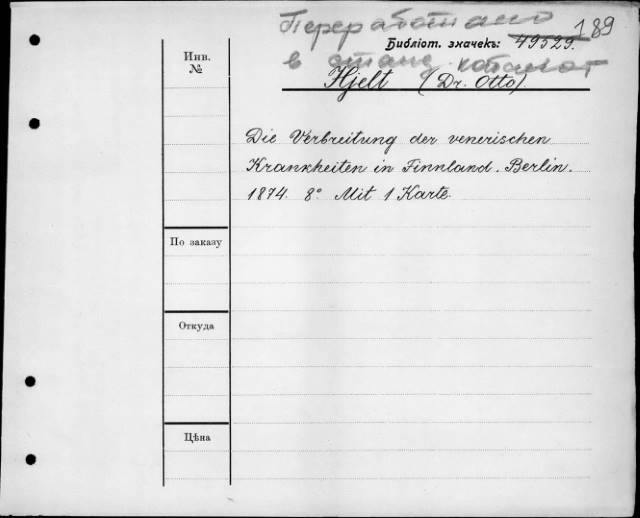 Переработано 189
Библіот. значекъ: 49529.
в станд. каталог
Hjelt (Dr. Otto).
Инв.
№
Die Verbreitung der venerischen
Krankheiten in Finnland. Berlin.
1874. 8° Mit 1 Karte.
По заказу
Откуда
Цѣна